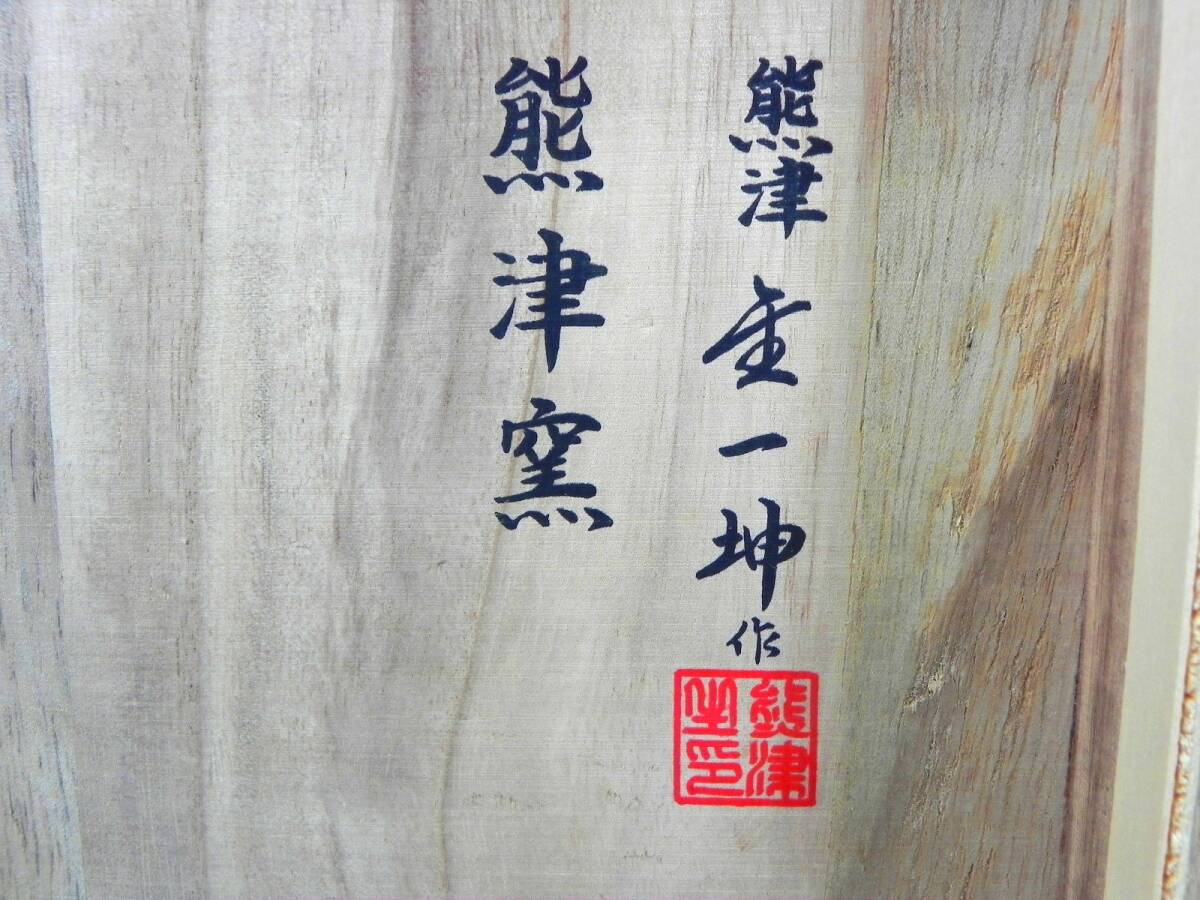 熊津 金一坤 作
熊津窯
熊津
之印